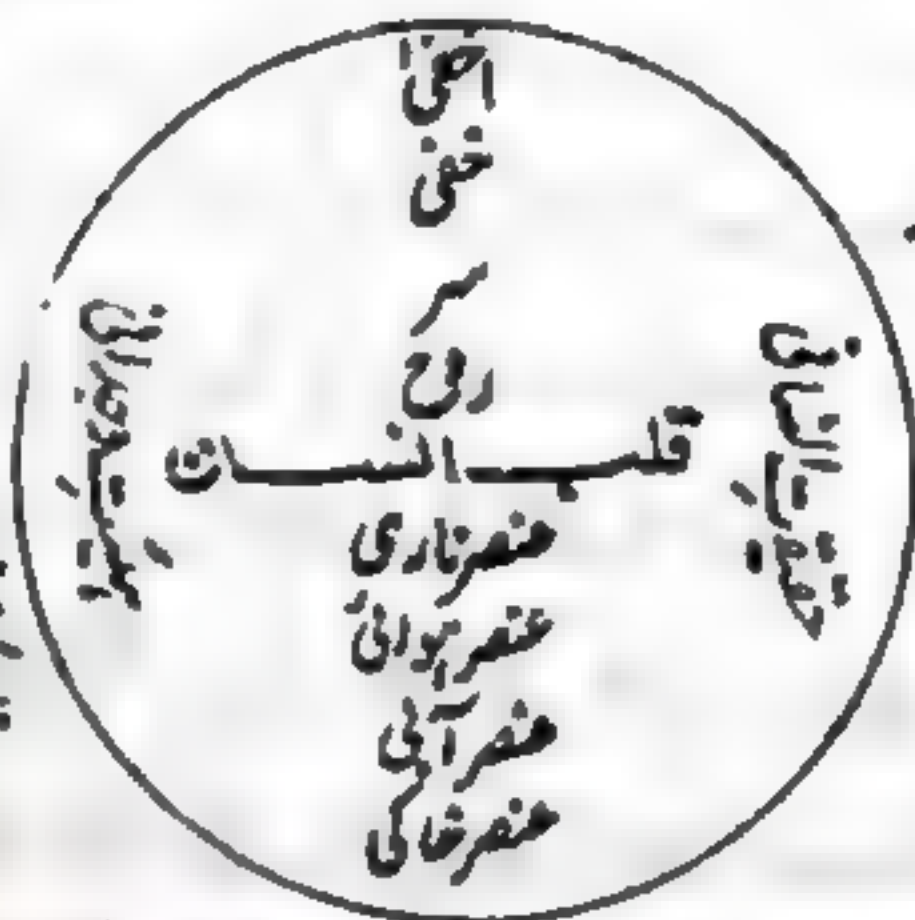 اخفی
خفی
سر
روح
قلب انسان
عنصر ناری
عنصر ہوائی
عنصر آبی
عنصر خاکی
حقیقت انسانی